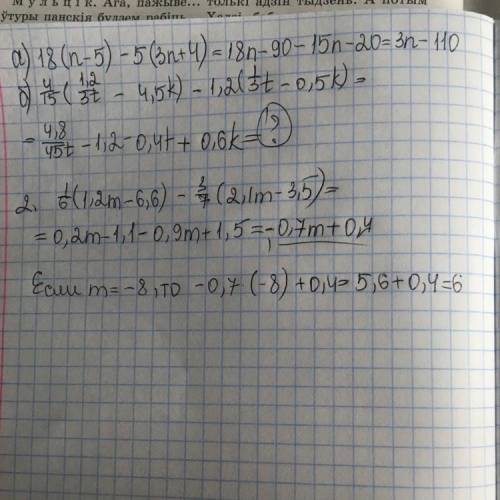 Мультік. Ага, пажыве... толькі адзін тыдзень. А потым
а) 18(n-5) - 5(3n+4) = 18n - 90 - 15n - 20 = 3n - 110
б) 4/15 (1,2/3t - 4,5k) - 1,2(1/3t - 0,5k) =
= 4,8/45t - 1,2 - 0,4t + 0,6k = ?
2. 1/6(1,2m - 6,6) - 3/7(2,1m - 3,5) =
= 0,2m - 1,1 - 0,9m + 1,5 = -0,7m + 0,4
Если m = -8, то -0,7 (-8) + 0,4 = 5,6 + 0,4 = 6